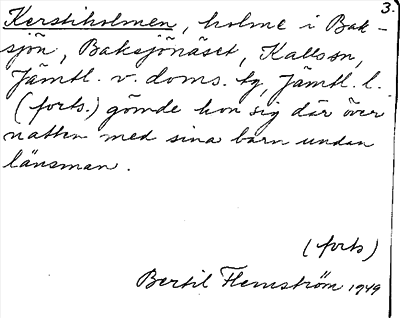 3.
Kerstiholmen, holme i Bak-
sjön, Baksjönäset, Kallssn,
Jämtl. v. doms. tg, Jämtl. l.
(forts.) gömde hon sig där över
natten med sina barn undan
länsman.
(forts)
Bertil Flemström 1949